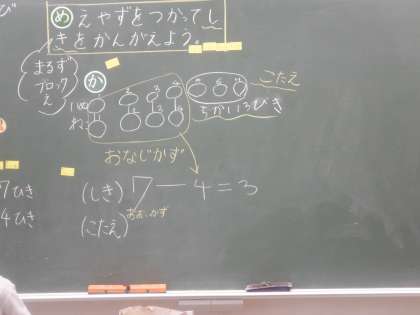 び
め えやずをつかってし
きをかんがえよう。
まるず
ブロック
え
か
いぬ
ねこ
こたえ
ちがい3びき
おなじかず
(しき) 7-4=3
おおいかず
(こたえ)
7ひき
4ひき